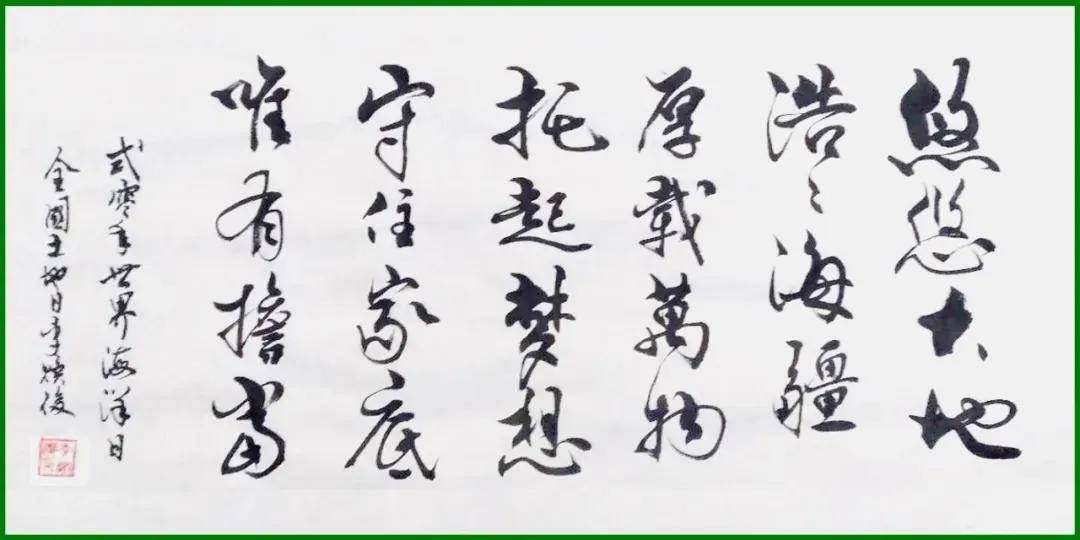 悠悠大地
浩〻海疆
厚載萬物
托起梦想
守住家底
唯有擔當
弍零年世界海洋日
全國土地日李焕俊